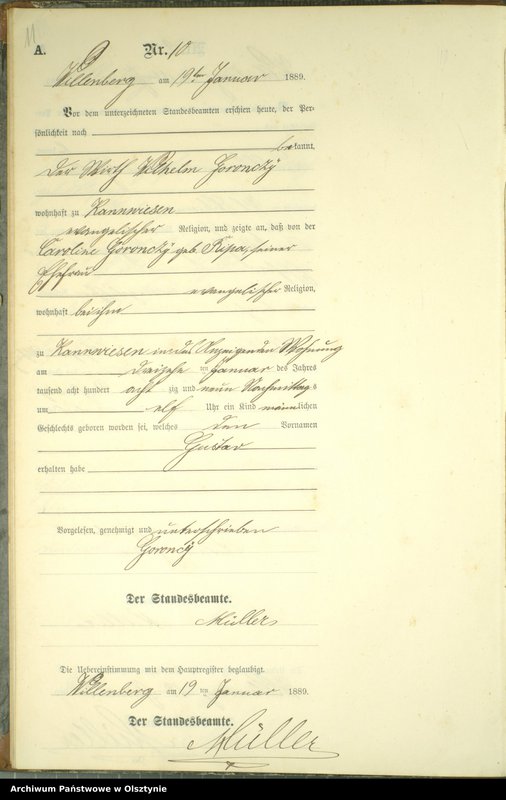 11
A. Nr. 10.
Willenberg am 19ten Januar 1889.
Vor dem unterzeichneten Standesbeamten erschien heute, der Per-
sönlichkeit nach
bekannt,
der Wirth Wilhelm Goronczÿ
wohnhaft zu Kannwiesen
evangelischer Religion, und zeigte an, daß von der
Caroline Goronczÿ geb. seiner
Ehefrau
evangelischer Religion,
wohnhaft bei ihm
zu Kannwiesen in des Anzeigenden Wohnung
am dreizehn ten Januar des Jahres
tausend acht hundert acht zig und neun Nachmittags
um elf Uhr ein Kind männlichen
Geschlechts geboren worden sei, welches den Vornamen
Gustav
erhalten habe
Vorgelesen, genehmigt und unterschrieben
Goroncÿ
Der Standesbeamte.
Müller
Die Uebereinstimmung mit dem Hauptregister beglaubigt.
Willenberg am 19 ten Januar 1889.
Der Standesbeamte.
Müller
Archiwum Państwowe w Olsztynie